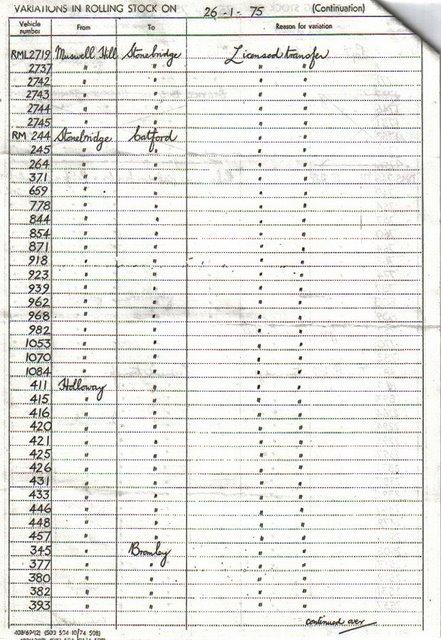 VARIATIONS IN ROLLING STOCK ON 26-1-75 (Continuation)
Vehicle number From To Reason for variation
RML2719 Muswell Hill Stonebridge Licensed transfer
2737 " " " "
2742 " " " "
2743 " " " "
2744 " " " "
2745 " " " "
RM 244 Stonebridge Catford " "
245 " " " "
264 " " " "
371 " " " "
659 " " " "
778 " " " "
844 " " " "
854 " " " "
871 " " " "
918 " " " "
923 " " " "
939 " " " "
962 " " " "
968 " " " "
982 " " " "
1053 " " " "
1070 " " " "
1084 " " " "
411 Holloway " " "
415 " " " "
416 " " " "
420 " " " "
421 " " " "
425 " " " "
426 " " " "
431 " " " "
433 " " " "
446 " " " "
448 " " " "
457 " " " "
345 " Bromley " "
377 " " " "
380 " " " "
382 " " " "
393 " " " "
continued over